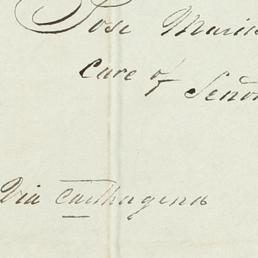 Jose Maria
care of
Señor
Via Carthagena